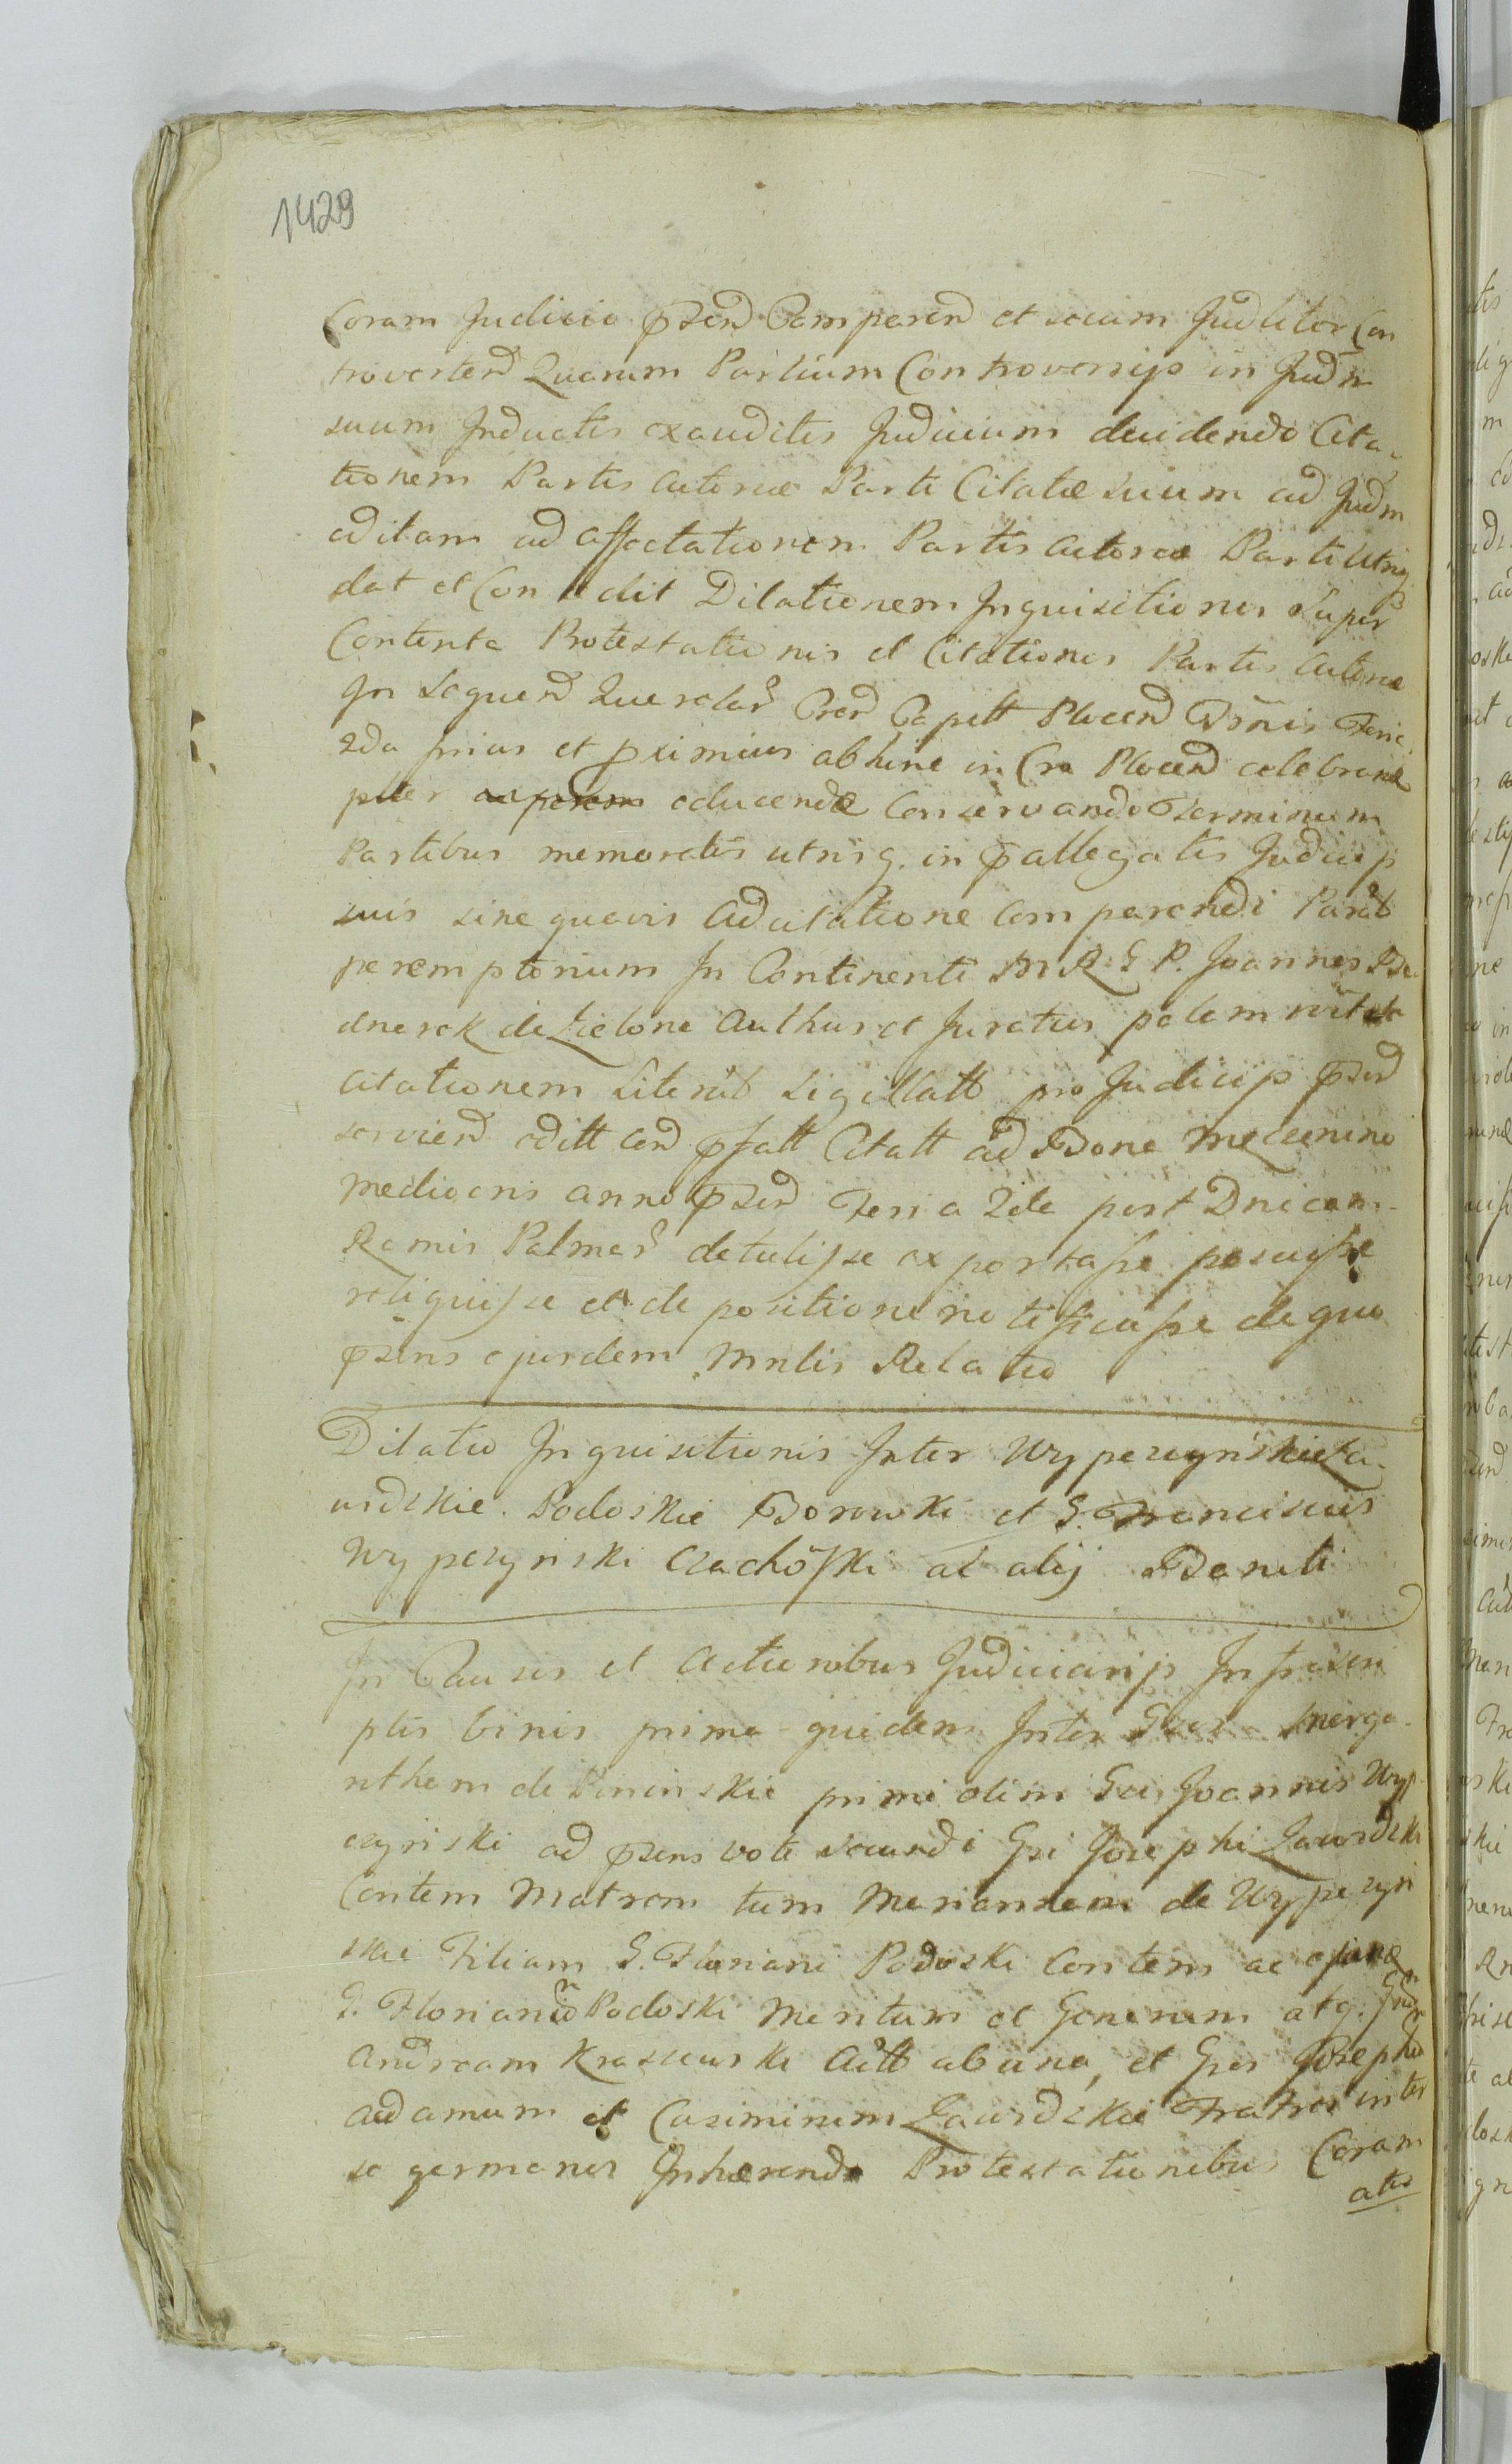 1429
Coram Judicio p̄send Comparend et secum Judliter Con
trovertend Quarum Partium Controversijs in Judm
suum Inductis exauditis Judicium decidendo Cita-
tionem Partis Actoreæ Parti Citatæ suum ad Judm
editam ad affectationem Partis Actoreæ Parti Utriq
dat et Concedit Dilationem Inquisitionis Super
Contenta Protestationis et Citationis Partis Actoreæ
In Sequend Querelar Crer Capitt Plocen Dnis Feria
2da prius et pximius abhinc in Cra Plocen celebrand
pter educendæ Conservando Terminum
Partibus memoratis utrisq. in p̄allegatis Judicijs
suis sine quavis Adcitatione Comparendi Partib
peremptorium In Continenti M R G P. Joannes Be
dnerek de Zielona Authus et Juratus palam
Citationem Literat Sigillatt pro Judicijs p̄send
serviend editt p̄fatt Citatt ad Bona
mediocris anno p̄send Feria 2da post Dnicam
Ramis Palmar detulisse exportasse posuisse
reliquisse et de positione notificasse de quo
p̄sens ejusdem Mnlis Relatio
Dilatio Inquisitionis Inter Wypczynskie Za-
wdzkie. Podoskie Borowski et G. Franciscus
Wypczynski Czachorski ac alij Baniti
In Causis et Actionibus Judiciarijs Infrascri
ptis binis prima quidem Inter Gsos
de Pininskie primi olim Gsi Joannis Wyp
czynski ad p̄sens voti secundi Gsi Josephi Zawdzki
Contem Matrem tum Mariannam de Wypczyn
skie Filiam G. Floriani Podoski Contem ac ejund
G. Florianum Podoski Maritum et Generum atq. Gsum
Andream Krasuuski Actt ab una, et Gsos Josephum
Adamum et Casimirum Zawdzkie Fratres inter
se germanos Inhærendo Protestationibus Coram
actis